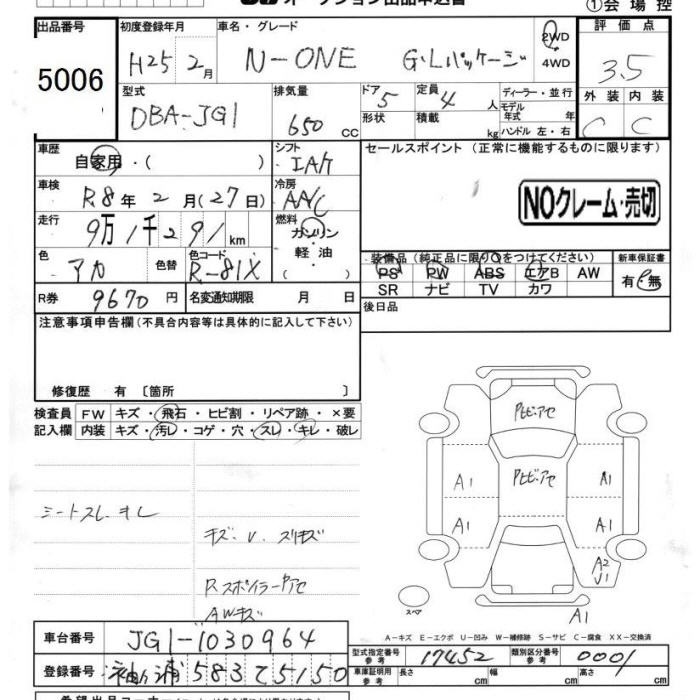 オークション出品申込書 ①会場控
出品番号 初度登録年月 車名・グレード 評価点
5006 H25 2月 N-ONE G・Lパッケージ 2WD 4WD 3.5
型式 排気量 ドア 定員 ディーラー・並行 外装 内装
DBA-JG1 650 CC 5 4人 モデル年式 年式 C C
形状 積載 kg ハンドル 左・右
車歴 シフト セールスポイント(正常に機能するものに限ります)
自家用・( ) IAT
車検 冷房
R8年2月(27日) AAC NOクレーム・売切
走行 燃料
9万1千291km ガソリン・軽油・( )
色 色替 色コード 装備品(純正品に限り○をつけてください) 新車保証書
アカ R-81X PS PW ABS エアB AW 有・無
SR ナビ TV カワ
R券 9670円 名変通知期限 月 日 後日品
注意事項申告欄(不具合内容等は具体的に記入して下さい)
修復歴 有〔箇所 〕
検査員 FW キズ・飛石・ヒビ割・リペア跡・×要
記入欄 内装 キズ・汚レ・コゲ・穴・スレ・キレ・破レ
シートスレ、キレ
キズ・U・スリキズ
RスポイラーPアセ
AWキズ
Pヒビアセ
Pヒビアセ
A1 A1
A1 A1
A2
U1
スペア
A1
A-キズ E-エクボ U-凹み W-補修跡 S-サビ C-腐食 XX-交換済
車台番号 JG1-1030964
型式指定番号 参考 17452 類別区分番号 参考 0001
登録番号 袖ヶ浦583て5150
車庫証明用 参考 長さ cm 幅 cm 高さ cm